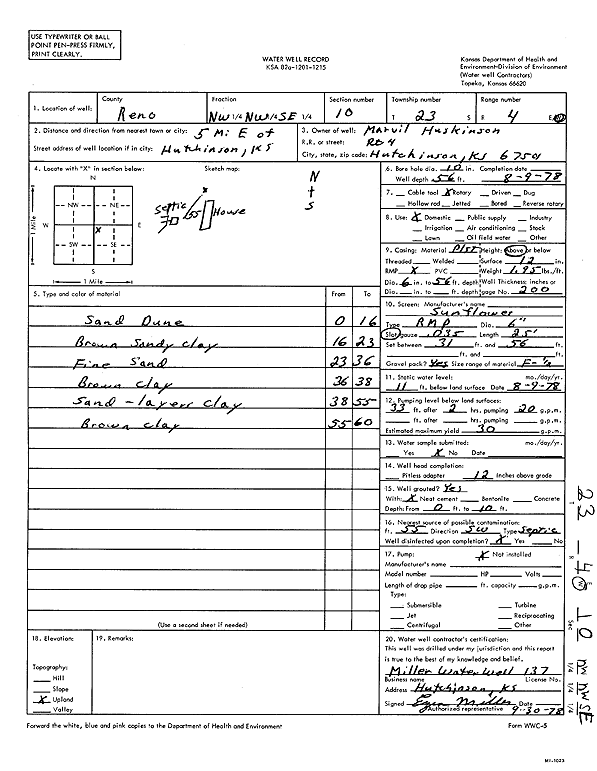 USE TYPEWRITER OR BALL
POINT PEN-PRESS FIRMLY,
PRINT CLEARLY.
WATER WELL RECORD
KSA 82a-1201-1215
Kansas Department of Health and
Environment-Division of Environment
(Water well Contractors)
Topeka, Kansas 66620
1. Location of well:
County
Reno
Fraction
NW 1/4 NW 1/4 SE 1/4
Section number
10
Township number
T 23 S
Range number
R 4 E/W
2. Distance and direction from nearest town or city: 5 Mi E of
Street address of well location if in city: Hutchinson, KS
3. Owner of well: Marvil Huskinson
R.R. or street: RD 4
City, state, zip code: Hutchinson, KS 67501
4. Locate with "X" in section below:
N
NW NE
W E
X
SW SE
S
1 Mile
1 Mile
Sketch map:
N
S
x
Septic
55
House
5. Type and color of material From To
Sand Dune 0 16
Brown Sandy Clay 16 23
Fine Sand 23 36
Brown Clay 36 38
Sand - layers Clay 38 55
Brown Clay 55 60
(Use a second sheet if needed)
6. Bore hole dia. 10 in. Completion date
Well depth 56 ft. 8-9-78
7. Cable tool X Rotary Driven Dug
Hollow rod Jetted Bored Reverse rotary
8. Use: X Domestic Public supply Industry
Irrigation Air conditioning Stock
Lawn Oil field water Other
9. Casing: Material Plst Height: Above or below
Threaded Welded Surface 12 in.
RMP X PVC Weight 1.95 lbs./ft.
Dia. 6 in. to 56 ft. depth Wall Thickness: inches or
Dia. in. to ft. depth gage No. 200
10. Screen: Manufacturer's name
Sunflower
Type RMP Dia. 6"
Slot/gauze .035 Length 25'
Set between 31 ft. and 56 ft.
ft. and ft.
Gravel pack? Yes Size range of material F-¼
11. Static water level: mo./day/yr.
11 ft. below land surface Date 8-9-78
12. Pumping level below land surfaces:
33 ft. after 2 hrs. pumping 20 g.p.m.
ft. after hrs. pumping g.p.m.
Estimated maximum yield 30 g.p.m.
13. Water sample submitted: mo./day/yr.
Yes X No Date
14. Well head completion:
Pitless adapter 12 Inches above grade
15. Well grouted? Yes
With: X Neat cement Bentonite Concrete
Depth: From 0 ft. to 10 ft.
16. Nearest source of possible contamination:
ft. 55 Direction SW Type Septic
Well disinfected upon completion? X Yes No
17. Pump: X Not installed
Manufacturer's name
Model number HP Volts
Length of drop pipe ft. capacity g.p.m.
Type:
Submersible Turbine
Jet Reciprocating
Centrifugal Other
18. Elevation:
Topography:
Hill
Slope
X Upland
Valley
19. Remarks:
20. Water well contractor's certification:
This well was drilled under my jurisdiction and this report
is true to the best of my knowledge and belief.
Miller Water Well 137
Business name License No.
Address Hutchinson, KS
Signed Miller Date 9-30-78
Authorized representative
23 - 4 W 10 NW NW SE
T R E Sec 1/4 1/4 1/4
Forward the white, blue and pink copies to the Department of Health and Environment
Form WWC-5
MI-1023